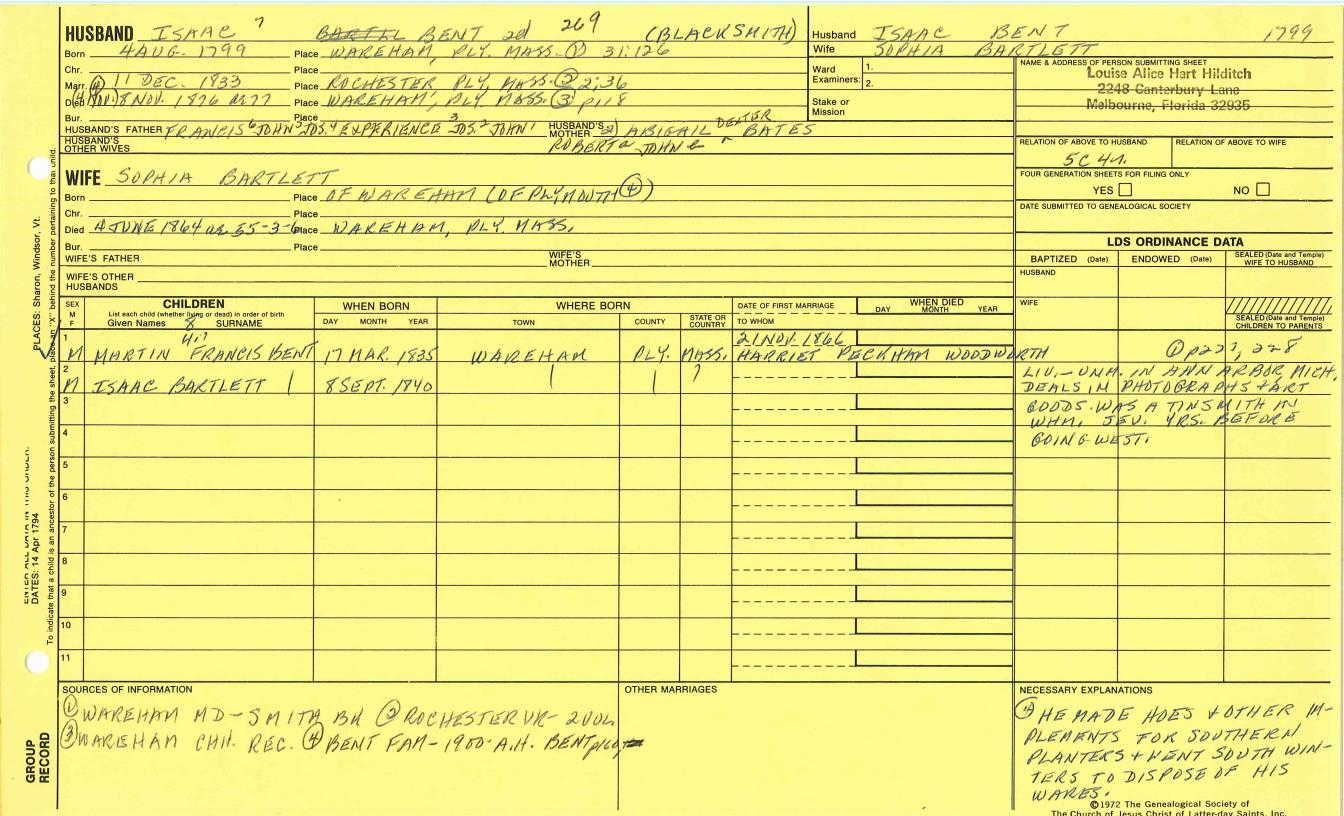 HUSBAND ISAAC 7 BENT 2d 269 (BLACKSMITH)
Born 4 AUG. 1799 Place WAREHAM, PLY. MASS. ① 31:126
Chr. Place
Marr. ④ 11 DEC. 1833 Place ROCHESTER PLY, MASS. ② 2;36
Died 8 NOV. 1876 Place WAREHAM, PLY MASS. ③ p118
Bur. Place
HUSBAND'S FATHER FRANCIS 6 JOHN 5 JOS. 4 EXPERIENCE 3 JOS. 2 JOHN 1 HUSBAND'S MOTHER 2) ABIGAIL DEXTER BATES
HUSBAND'S OTHER WIVES
ROBERTA JOHN
Husband ISAAC BENT 1799
Wife SOPHIA BARTLETT
Ward Examiners: 1.
2.
Stake or Mission
NAME & ADDRESS OF PERSON SUBMITTING SHEET
Louise Alice Hart Hilditch
2248 Canterbury Lane
Melbourne, Florida 32935
RELATION OF ABOVE TO HUSBAND RELATION OF ABOVE TO WIFE
5C 4r.
FOUR GENERATION SHEETS FOR FILING ONLY
YES NO
DATE SUBMITTED TO GENEALOGICAL SOCIETY
WIFE SOPHIA BARTLETT
Born Place OF WAREHAM (OF PLYMOUTH ④)
Chr. Place
Died 4 JUNE 1864 ae 55-3-6 Place WAREHAM, PLY. MASS.
Bur. Place
WIFE'S FATHER WIFE'S MOTHER
WIFE'S OTHER HUSBANDS
LDS ORDINANCE DATA
BAPTIZED (Date) ENDOWED (Date) SEALED (Date and Temple) WIFE TO HUSBAND
HUSBAND
WIFE
SEALED (Date and Temple) CHILDREN TO PARENTS
SEX M F CHILDREN List each child (whether living or dead) in order of birth Given Names 8 SURNAME
WHEN BORN DAY MONTH YEAR
WHERE BORN TOWN COUNTY STATE OR COUNTRY
DATE OF FIRST MARRIAGE TO WHOM
WHEN DIED DAY MONTH YEAR
1 M MARTIN FRANCIS BENT 17 MAR. 1835 WAREHAM PLY. MASS. 21 NOV. 1866
HARRIET PECKHAM WOODWORTH ① p227, 228
2 M ISAAC BARTLETT 8 SEPT. 1840
LIV.-UNM. IN ANN ARBOR MICH.
DEALS IN PHOTOGRAPHS + ART
GOODS. WAS A TINSMITH IN
WHM, SEV. YRS. BEFORE
GOING WEST.
3
4
5
6
7
8
9
10
11
SOURCES OF INFORMATION
① WAREHAM MD-SMITH BK ② ROCHESTER VR- 2 VOL
③ WAREHAM CHH. REC. ④ BENT FAM-1900-A.H. BENT
OTHER MARRIAGES
NECESSARY EXPLANATIONS
④ HE MADE HOES + OTHER IM-
PLEMENTS FOR SOUTHERN
PLANTERS + WENT SOUTH WIN-
TERS TO DISPOSE OF HIS
WARES.
©1972 The Genealogical Society of
The Church of Jesus Christ of Latter-day Saints, Inc.
PLACES: Sharon, Windsor, Vt.
ENTER ALL DATA IN THIS ORDER:
DATES: 14 Apr 1794
To indicate that a child is an ancestor of the person submitting the sheet, place an "X" behind the number pertaining to that child.
GROUP
RECORD